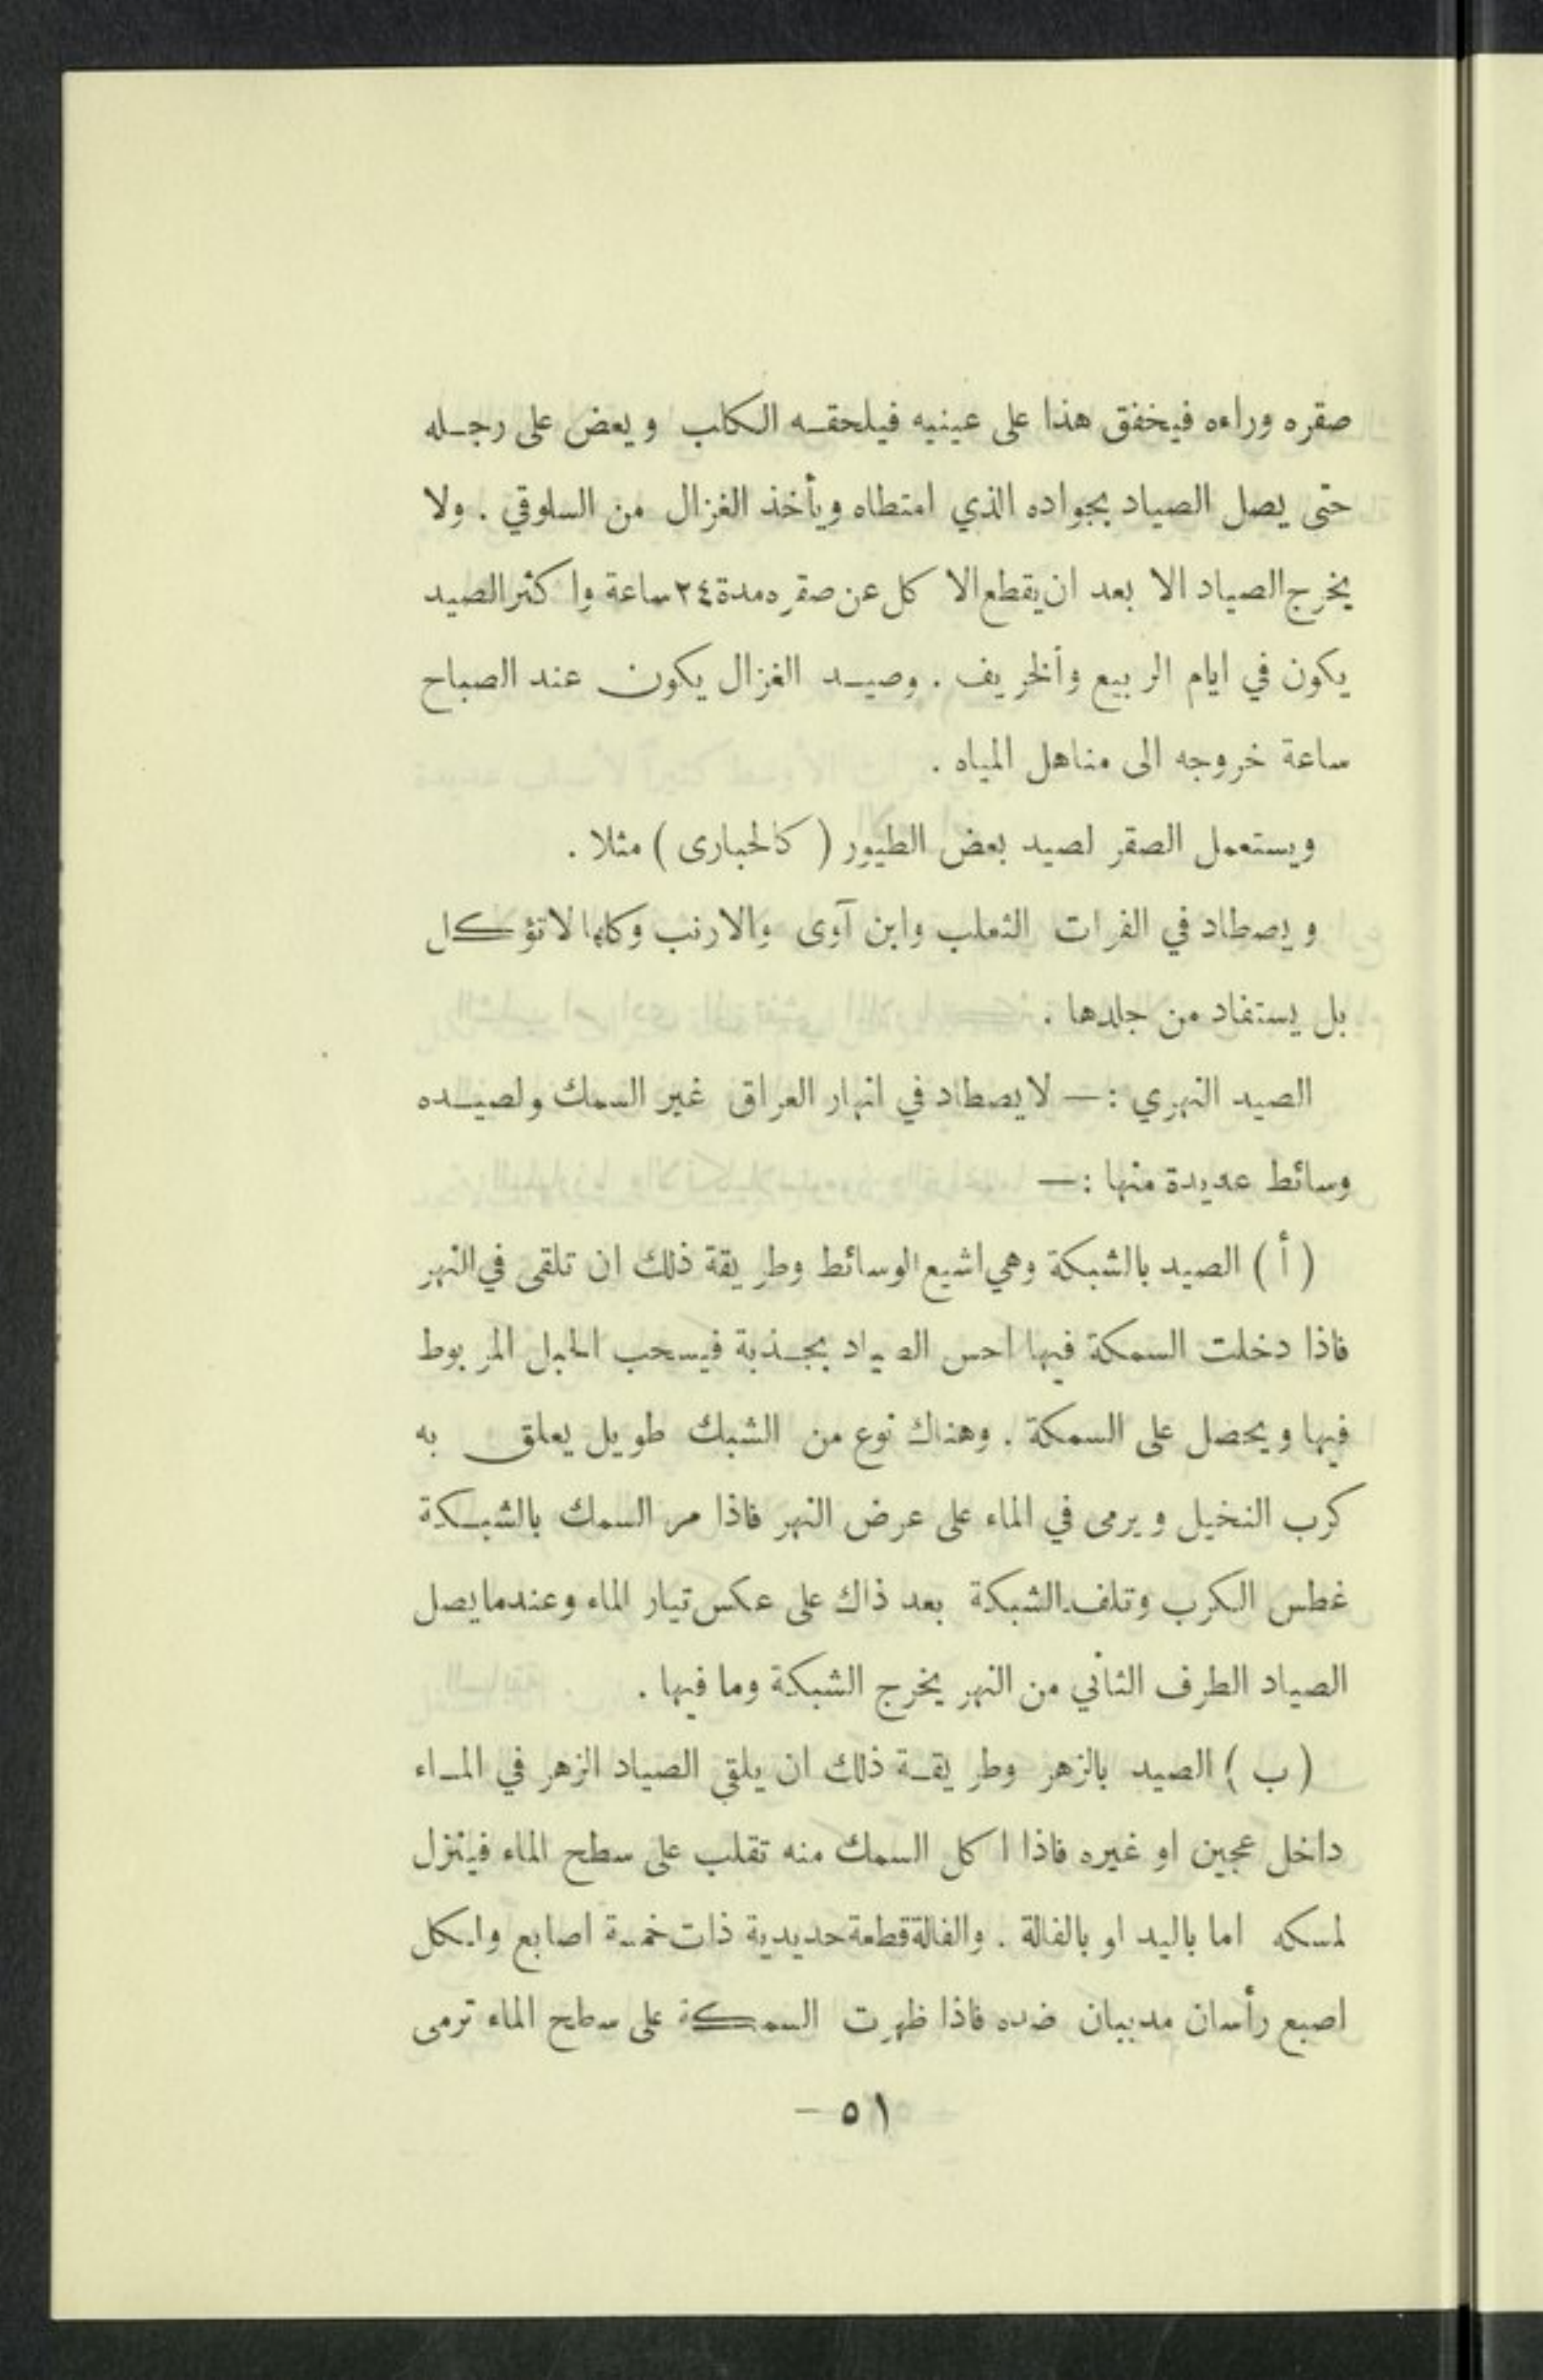 صقره وراءه فيخفق هذا على عينيه فيلحقه الكلب ويعض على رجله
حتى يصل الصياد بجواده الذي امتطاه ويأخذ الغزال من السلوقي . ولا
يخرج الصياد الا بعد ان يقطع الاكل عن صقره مدة ٢٤ ساعة واكثر الصيد
يكون في ايام الربيع وألخريف . وصيد الغزال يكون عند الصباح
ساعة خروجه الى مناهل المياه .
ويستعمل الصقر لصيد بعض الطيور ( كالحبارى ) مثلا .
ويصطاد في الفرات الثعلب وابن آوى والارنب وكلها لاتؤكل
بل يستفاد من جلدها .
الصيد النهري : — لايصطاد في انهار العراق غير السمك ولصيده
وسائط عديدة منها : —
( أ ) الصيد بالشبكة وهي اشيع الوسائط وطريقة ذلك ان تلقى في النهر
فاذا دخلت السمكة فيها احس الصياد بجذبة فيسحب الحبل المربوط
فيها ويحصل على السمكة . وهناك نوع من الشبك طويل يعلق به
كرب النخيل ويرمى في الماء على عرض النهر فاذا مر السمك بالشبكة
غطس الكرب وتلف الشبكة بعد ذاك على عكس تيار الماء وعندما يصل
الصياد الطرف الثاني من النهر يخرج الشبكة وما فيها .
( ب ) الصيد بالزهر وطريقة ذلك ان يلقي الصياد الزهر في الماء
داخل عجين او غيره فاذا اكل السمك منه تقلب على سطح الماء فينزل
لمسكه اما باليد او بالفالة . والفالة قطعة حديدية ذات خمسة اصابع ولكل
اصبع رأسان مدببان ضده فاذا ظهرت السمكة على سطح الماء ترمى
٥١ —